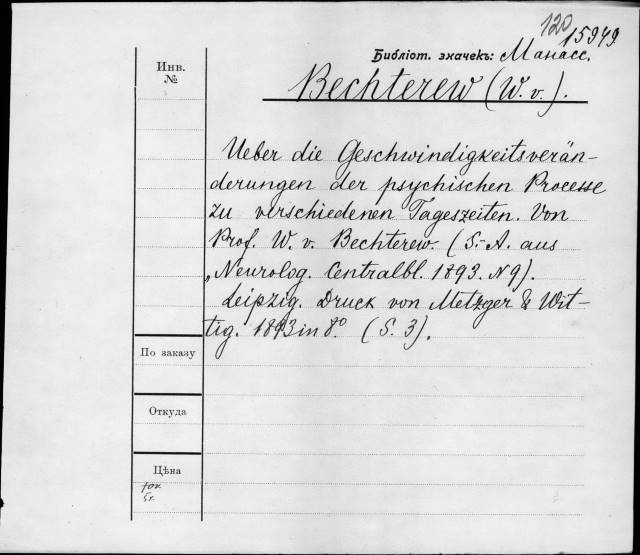 120
15949
Библіот. значекъ: Манасс.
Инв.
№
Bechterew (W. v.).
Ueber die Geschwindigkeitsverän-
derungen der psychischen Processe
zu verschiedenen Tageszeiten. Von
Prof. W. v. Bechterew. (S.-A. aus
„Neurolog. Centralbl. 1893. N 9).
Leipzig. Druck von Metzger & Wit-
tig. 1893 in 8.° (S. 3).
По заказу
Откуда
Цѣна